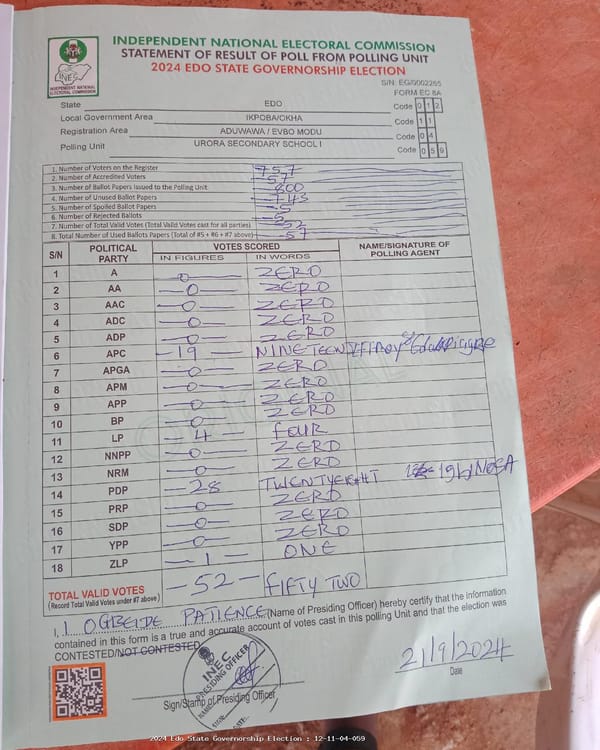 INDEPENDENT NATIONAL ELECTORAL COMMISSION
STATEMENT OF RESULT OF POLL FROM POLLING UNIT
2024 EDO STATE GOVERNORSHIP ELECTION
INEC
INDEPENDENT NATIONAL
ELECTORAL COMMISSION
S/N: EG/0002255
FORM EC 8A
State EDO Code 0 1 2
Local Government Area IKPOBA/OKHA Code 1 1
Registration Area ADUWAWA / EVBO MODU Code 0 4
Polling Unit URORA SECONDARY SCHOOL I Code 0 5 9
1. Number of Voters on the Register 757
2. Number of Accredited Voters 57
3. Number of Ballot Papers Issued to the Polling Unit 800
4. Number of Unused Ballot Papers 743
5. Number of Spoiled Ballot Papers
6. Number of Rejected Ballots 5
7. Number of Total Valid Votes (Total Valid Votes cast for all parties) 52
8. Total Number of Used Ballots Papers (Total of #5 + #6 + #7 above) 57
S/N POLITICAL PARTY VOTES SCORED NAME/SIGNATURE OF POLLING AGENT
IN FIGURES IN WORDS
1 A 0 ZERO
2 AA 0 ZERO
3 AAC 0 ZERO
4 ADC 0 ZERO
5 ADP 0 ZERO
6 APC 19 NINETEEN
7 APGA 0 ZERO
8 APM 0 ZERO
9 APP 0 ZERO
10 BP 0 ZERO
11 LP 4 FOUR
12 NNPP 0 ZERO
13 NRM 0 ZERO
14 PDP 28 TWENTYEIGHT
15 PRP 0 ZERO
16 SDP 0 ZERO
17 YPP 0 ZERO
18 ZLP 1 ONE
TOTAL VALID VOTES 52 FIFTY TWO
(Record Total Valid Votes under #7 above)
I, I OGBEIDE PATIENCE (Name of Presiding Officer) hereby certify that the information
contained in this form is a true and accurate account of votes cast in this polling Unit and that the election was
CONTESTED/NOT CONTESTED
INEC
PRESIDING OFFICER
21/9/2024
Sign/Stamp of Presiding Officer Date
2024 Edo State Governorship Election : 12-11-04-059